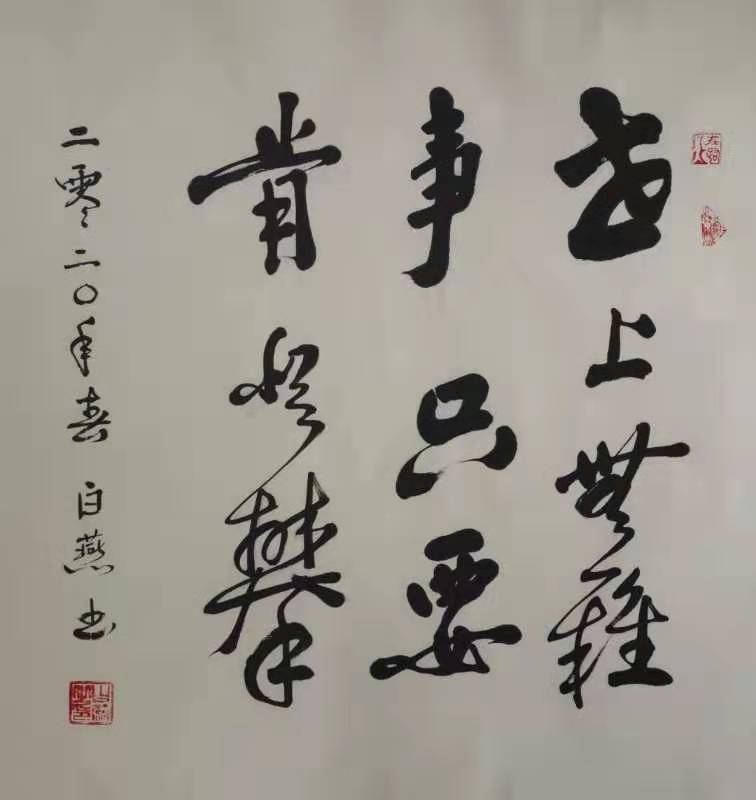 世上無難
事只要
肯登攀
二零二〇年春 白燕书